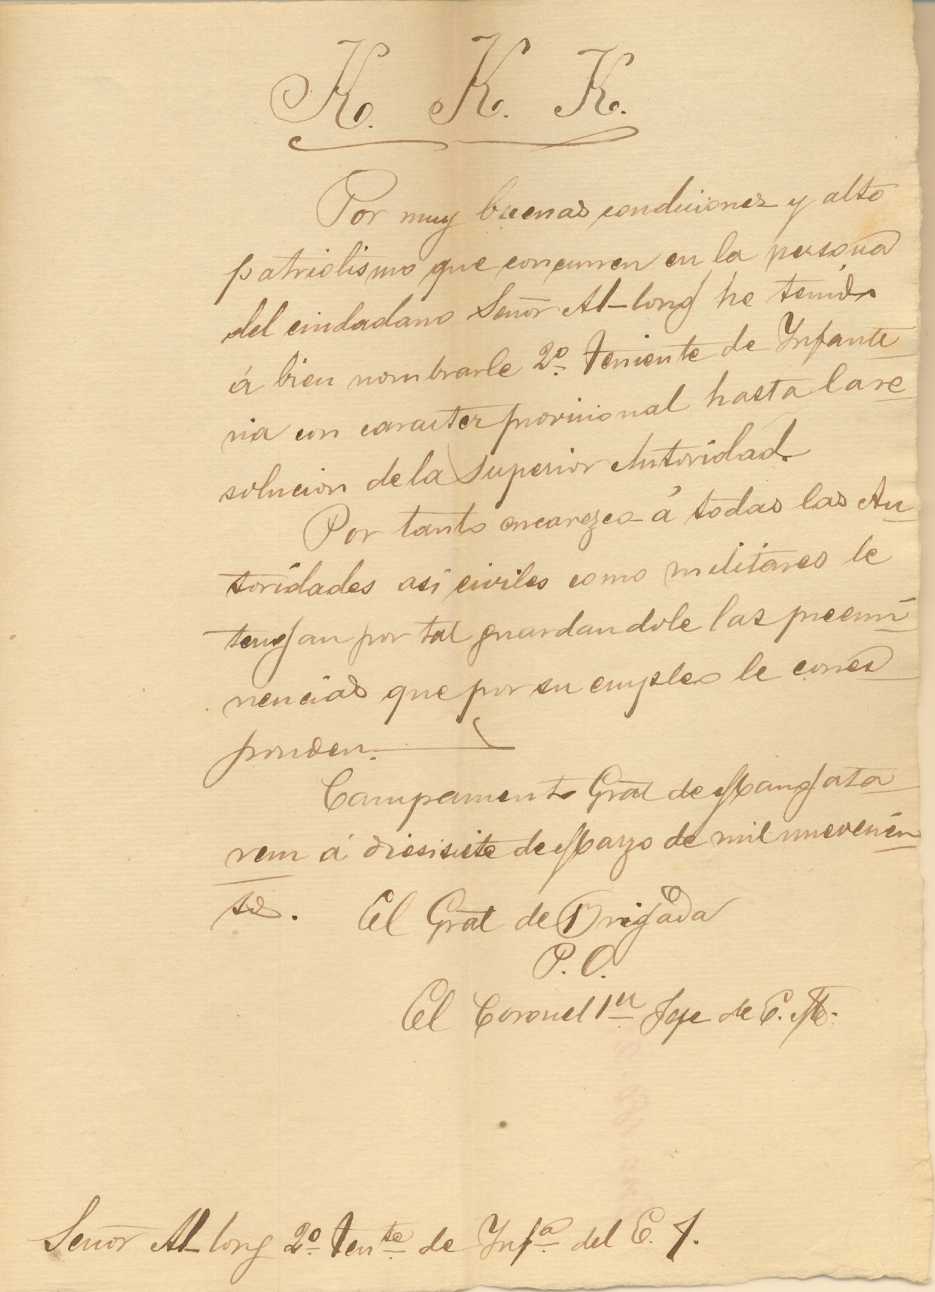 K. K. K.
Por muy buenas condiciones y alto
patriotismo que concurren en la persona
del ciudadano Señor Al-long he tenido
á bien nombrarle 2º Teniente de Ynfante
ria con caracter provicional hasta la re
solucion de la Superior Autoridad.
Por tanto encarezco á todas las Au
toridades asi civiles como militares le
tengan por tal guardandole las preemi
nencias que por su empleo le corres
ponden.
Campamento Gral de Mangata
rem á diesisiete de Mayo de mil nuevecien
tos.
El Gral de Brigada
P. O.
El Coronel 1er Jefe de E. M.
Señor Al-long 2º Tente de Ynfa del E. F.